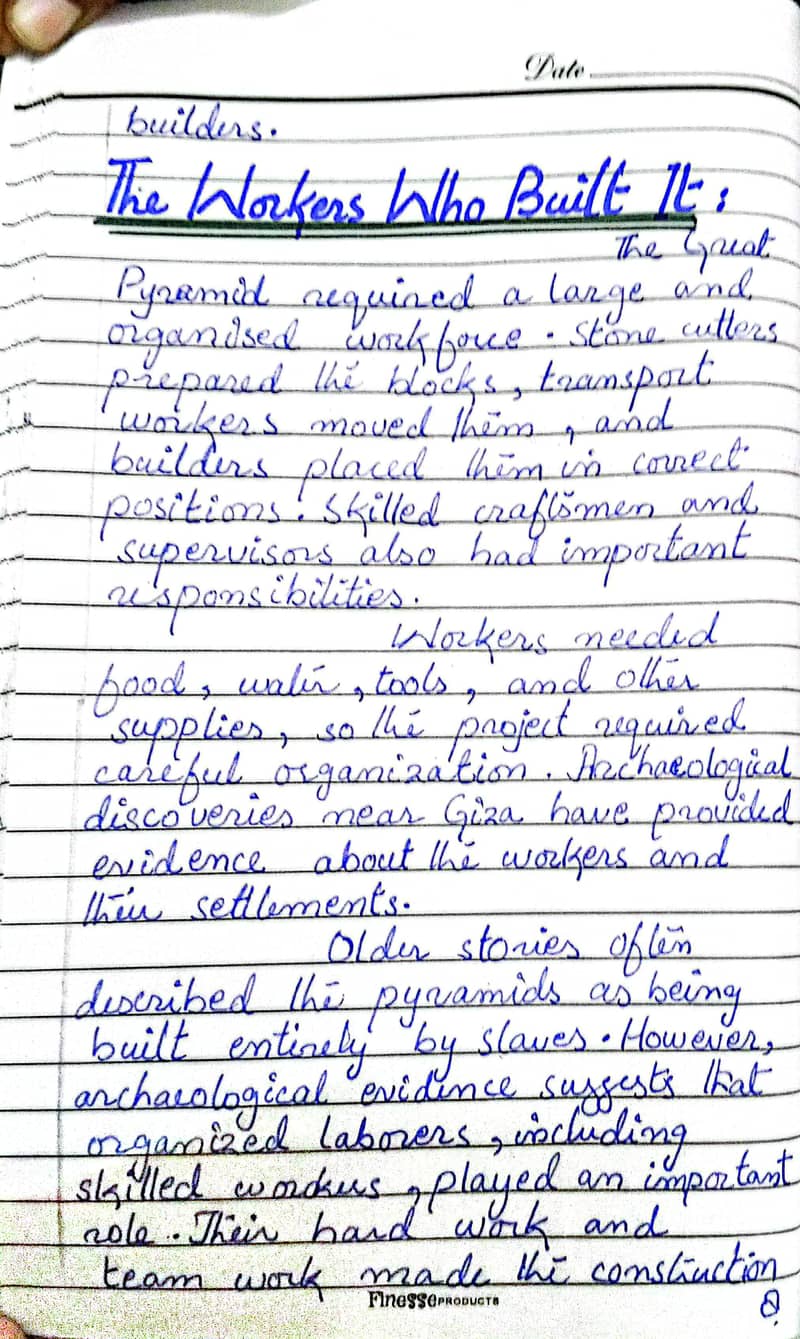 Date
builders.
The Workers Who Built It:
The Great
Pyramid required a large and
organised workforce. Stone cutters
prepared the blocks, transport
workers moved them, and
builders placed them in correct
positions. Skilled craftsmen and
supervisors also had important
responsibilities.
Workers needed
food, water, tools, and other
supplies, so the project required
careful organization. Archaeological
discoveries near Giza have provided
evidence about the workers and
their settlements.
Older stories often
described the pyramids as being
built entirely by slaves. However,
archaeological evidence suggests that
organized laborers, including
skilled workers, played an important
role. Their hard work and
team work made the construction
Finesse PRODUCTS